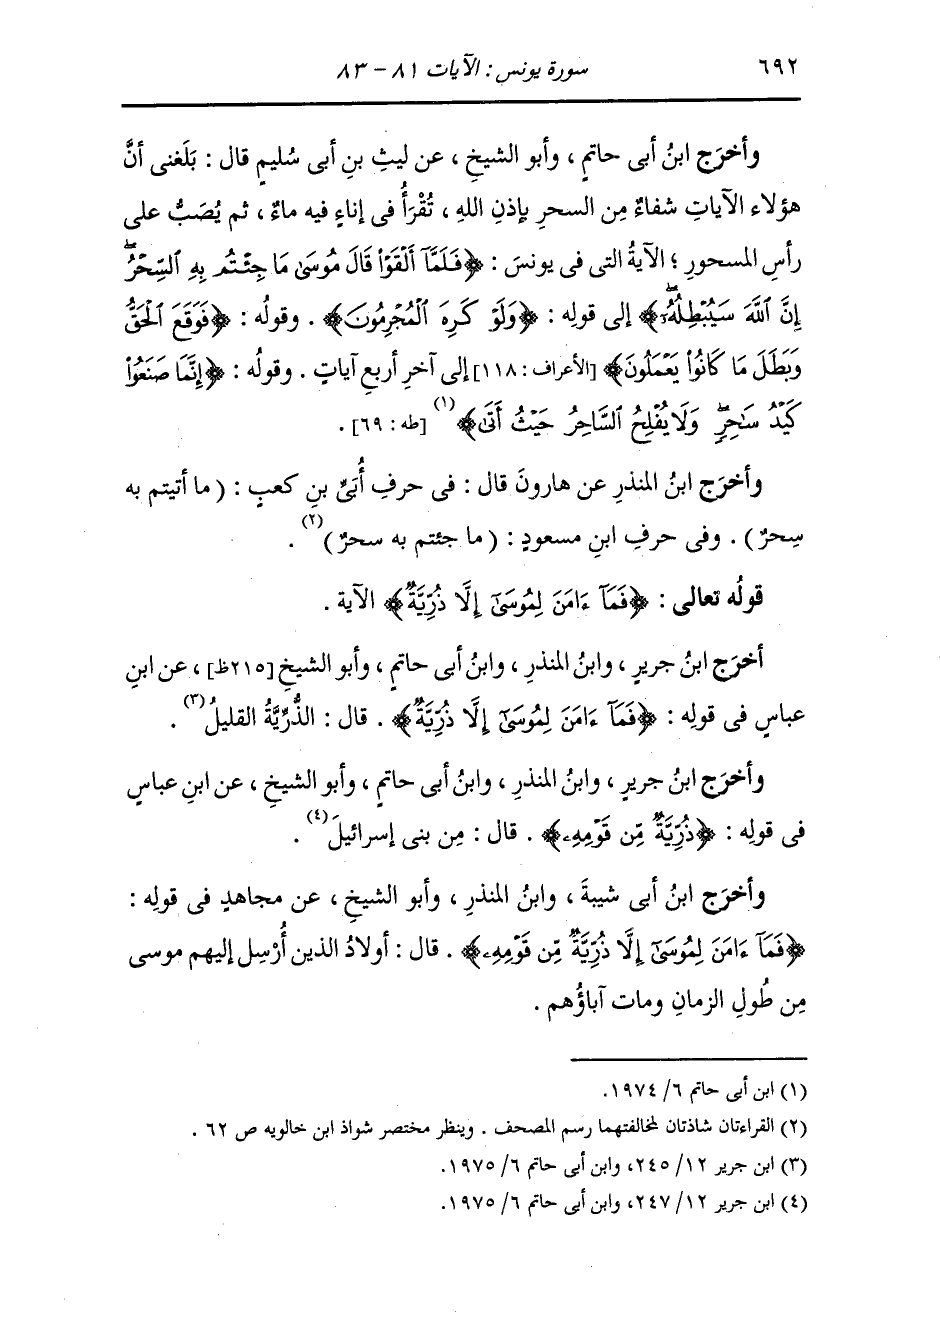 ٦٩٢ سورة يونس : الآيات ٨١ - ٨٣
وأخرَج ابنُ أبى حاتمٍ ، وأبو الشيخِ ، عن ليثِ بنِ أبى سُليمٍ قال : بَلَغنى أنَّ
هؤلاء الآياتِ شفاءٌ مِن السحرِ بإذنِ اللهِ ، تُقْرَأُ فى إناءٍ فيه ماءٌ ، ثم يُصَبُّ على
رأسِ المسحورِ ؛ الآيةُ التى فى يونسَ : ﴿فَلَمَّآ أَلْقَوْا۟ قَالَ مُوسَىٰ مَا جِئْتُم بِهِ ٱلسِّحْرُۖ
إِنَّ ٱللَّهَ سَيُبْطِلُهُۥٓۖ﴾ إلى قولِه : ﴿وَلَوْ كَرِهَ ٱلْمُجْرِمُونَ﴾ . وقولُه : ﴿فَوَقَعَ ٱلْحَقُّ
وَبَطَلَ مَا كَانُوا۟ يَعْمَلُونَ﴾ [الأعراف : ١١٨] إلى آخرِ أربعِ آياتٍ . وقولُه : ﴿إِنَّمَا صَنَعُوا۟
كَيْدُ سَٰحِرٍۖ وَلَا يُفْلِحُ ٱلسَّاحِرُ حَيْثُ أَتَىٰ﴾ (١) [طه : ٦٩] .
وأخرَج ابنُ المنذرِ عن هارونَ قال : فى حرفِ أُبَىِّ بنِ كعبٍ : ( ما أتيتم به
سِحرٌ ) . وفى حرفِ ابنِ مسعودٍ : ( ما جئتم به سحرٌ ) (٢) .
قولُه تعالى : ﴿فَمَآ ءَامَنَ لِمُوسَىٰٓ إِلَّا ذُرِّيَّةٌ﴾ الآية .
أخرَج ابنُ جريرٍ ، وابنُ المنذرِ ، وابنُ أبى حاتمٍ ، وأبو الشيخِ [٢١٥ظ] ، عن ابنِ
عباسٍ فى قولِه : ﴿فَمَآ ءَامَنَ لِمُوسَىٰٓ إِلَّا ذُرِّيَّةٌ﴾ . قال : الذُّرِّيَّةُ القليلُ (٣) .
وأخرَج ابنُ جريرٍ ، وابنُ المنذرِ ، وابنُ أبى حاتمٍ ، وأبو الشيخِ ، عن ابنِ عباسٍ
فى قولِه : ﴿ذُرِّيَّةٌ مِّن قَوْمِهِۦ﴾ . قال : مِن بنى إسرائيلَ (٤) .
وأخرَج ابنُ أبى شيبةَ ، وابنُ المنذرِ ، وأبو الشيخِ ، عن مجاهدٍ فى قولِه :
﴿فَمَآ ءَامَنَ لِمُوسَىٰٓ إِلَّا ذُرِّيَّةٌ مِّن قَوْمِهِۦ﴾ . قال : أولادُ الذين أُرْسِل إليهم موسى
مِن طُولِ الزمانِ ومات آباؤُهم .
(١) ابن أبى حاتم ٦/ ١٩٧٤.
(٢) القراءتان شاذتان لمخالفتهما رسم المصحف . وينظر مختصر شواذ ابن خالويه ص ٦٢ .
(٣) ابن جرير ١٢/ ٢٤٥، وابن أبى حاتم ٦/ ١٩٧٥.
(٤) ابن جرير ١٢/ ٢٤٧، وابن أبى حاتم ٦/ ١٩٧٥.